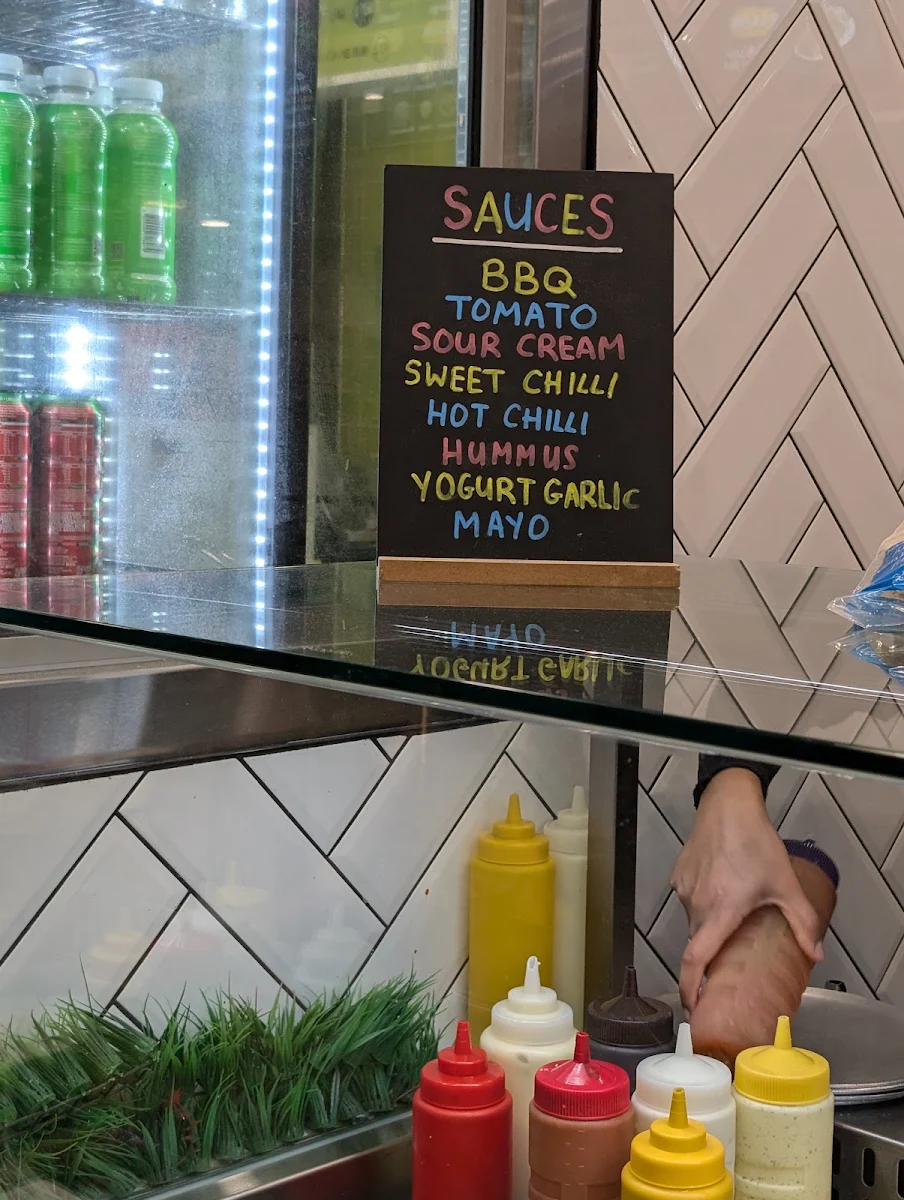 SAUCES
BBQ
TOMATO
SOUR CREAM
SWEET CHILLI
HOT CHILLI
HUMMUS
YOGURT GARLIC
MAYO